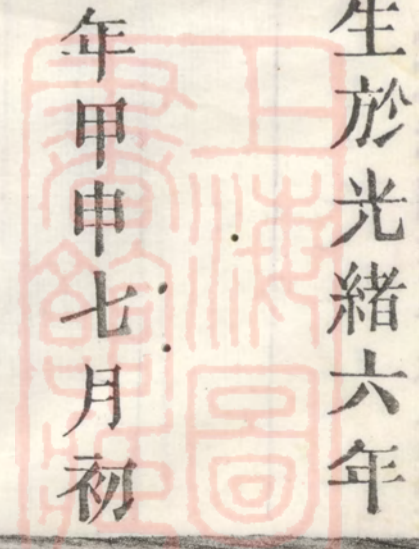 生於光緒六年
年甲申七月初
上海圖書館藏